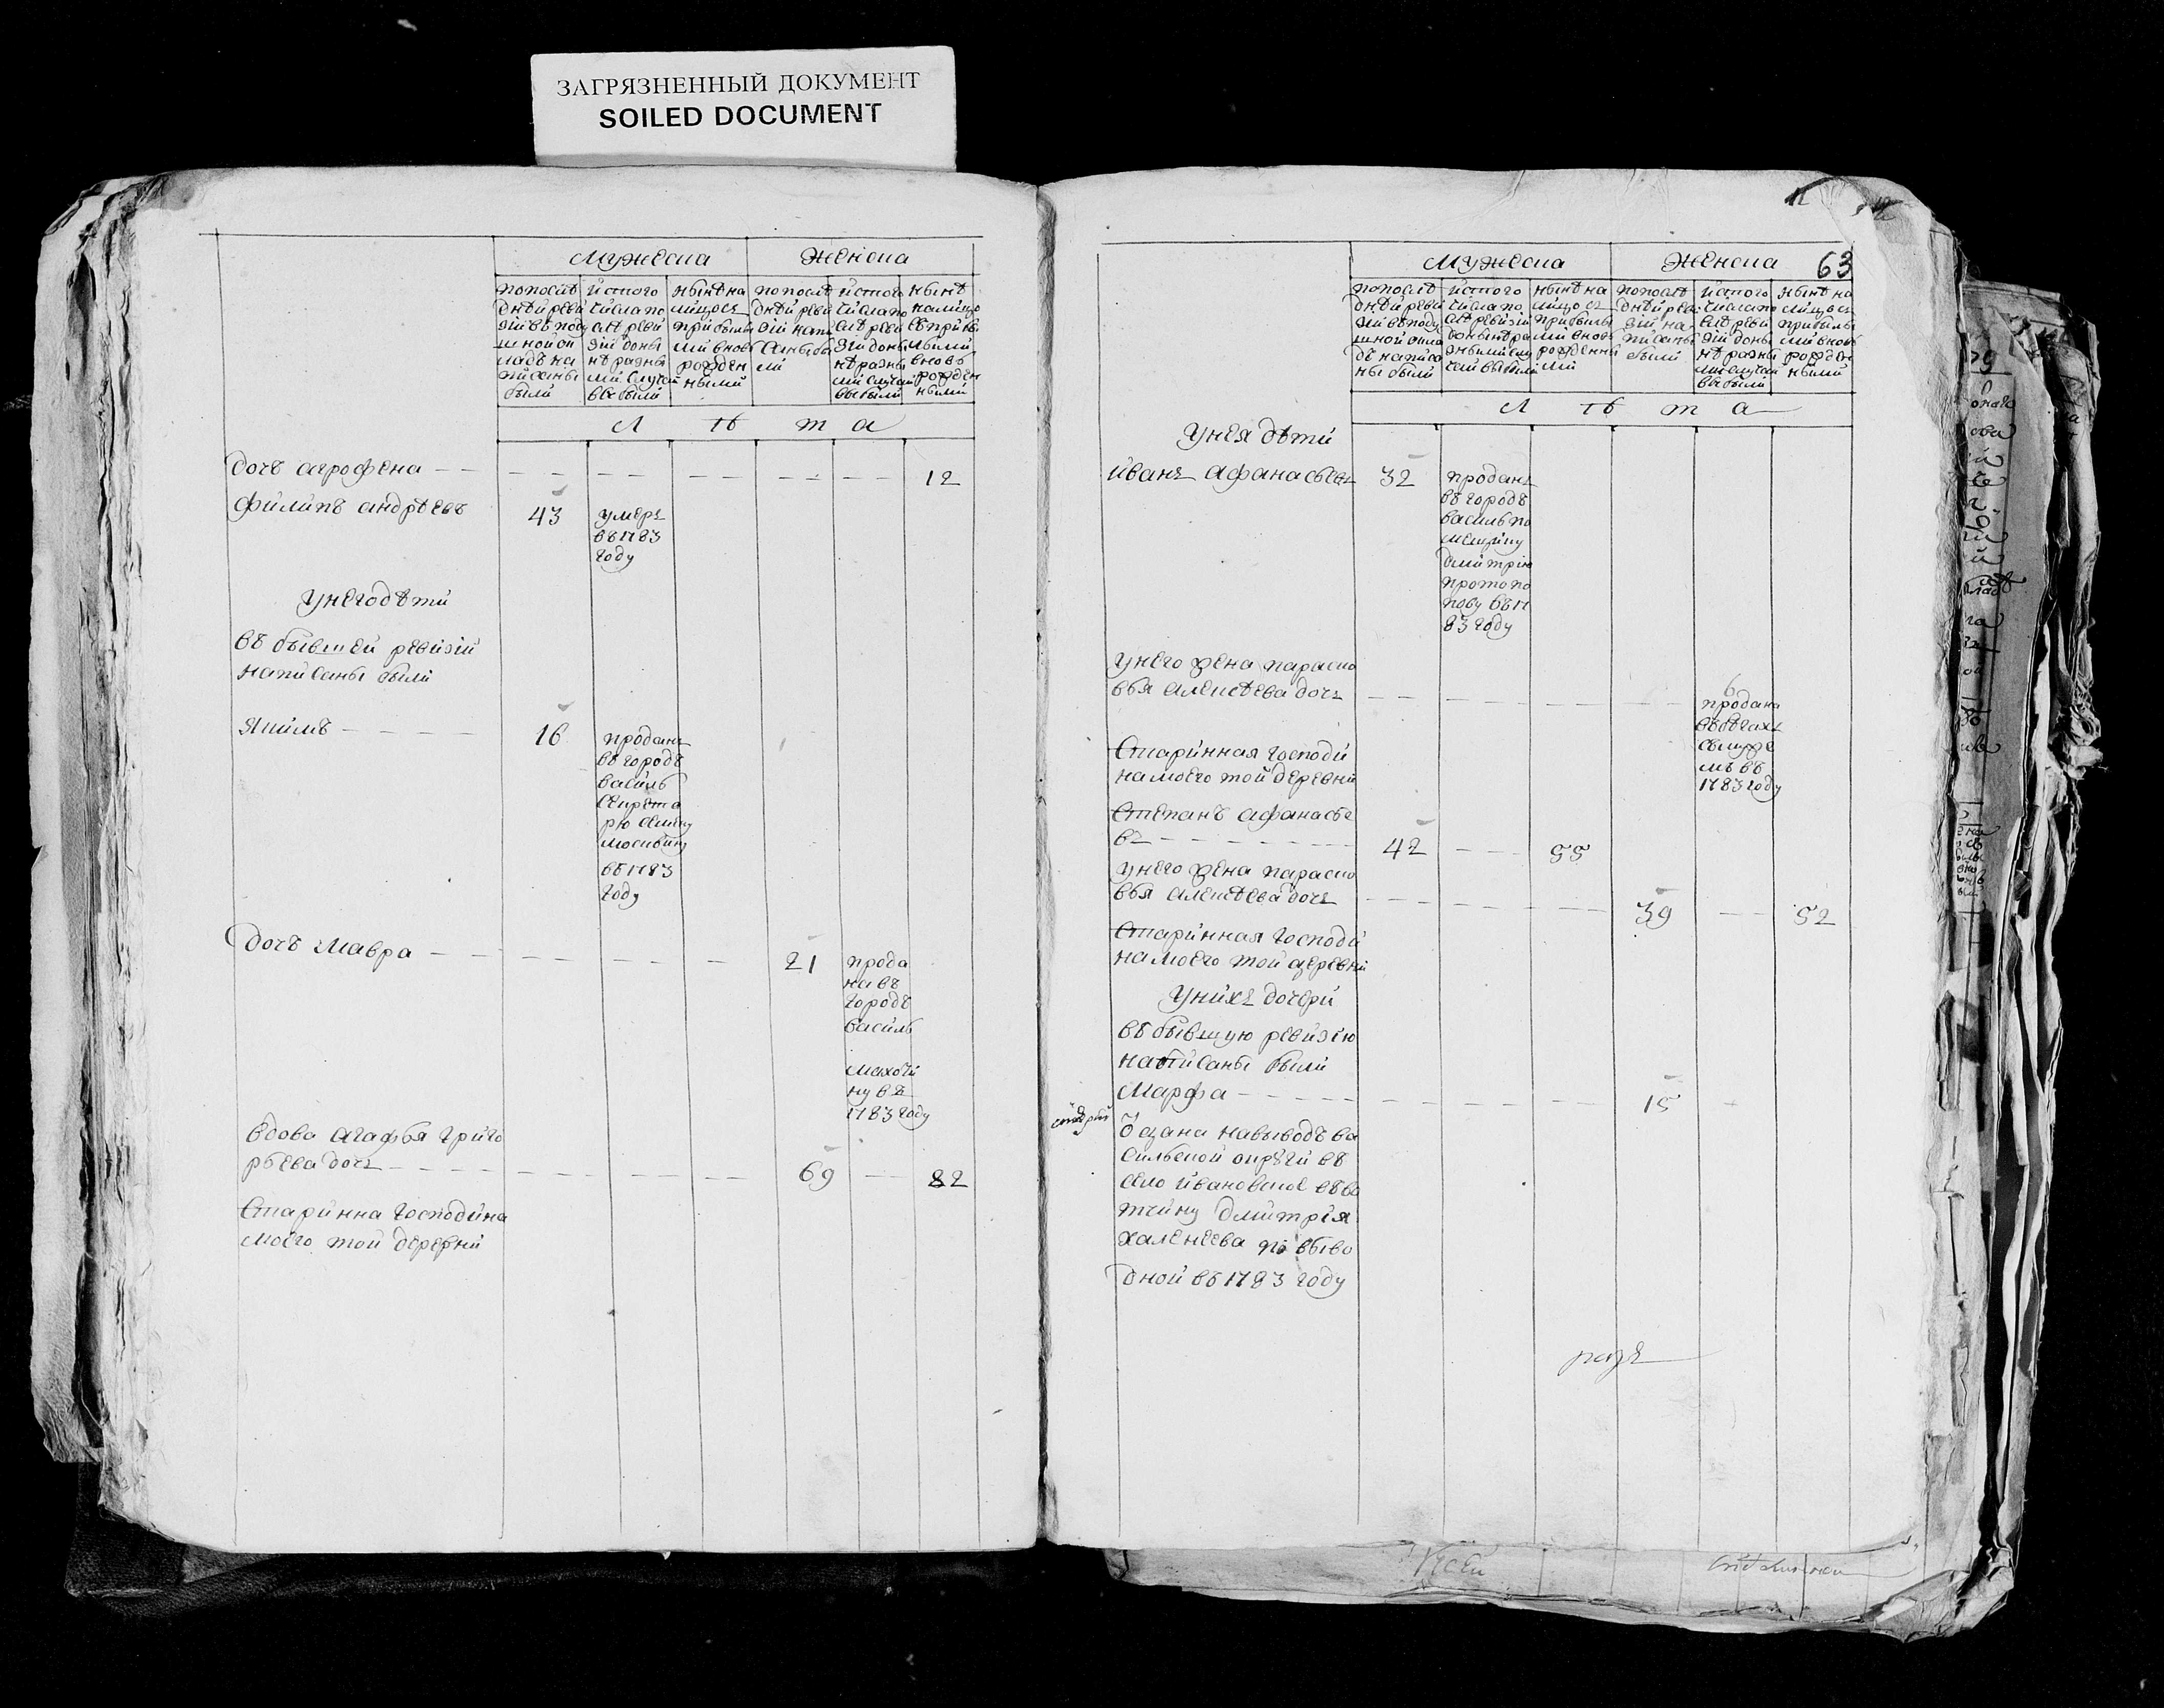 ЗАГРЯЗНЕННЫЙ ДОКУМЕНТ
SOILED DOCUMENT
Мужеска
Женска
пополѣ
днѣй реви
зіи въ поду
шной ок
ладъ на
писаны
были
истого
числа по
слѣ реви
зіи донынѣ
разны
ми случаи
выбыли
нынѣ на
лицо съ
прибылы
ми вновь
рожден
ными
пополѣ
днѣй реви
зіи напи
саны бы
ли
истого
числа по
слѣ реви
зіи доны
нѣ разны
ми случаи
выбыли
нынѣ
на лицо
съ прибы
лыми
вновь
рожден
ными
л ѣ т а
дочь агрофена
12
филипъ андрѣевъ
43
умеръ
въ 1783
году
у него дѣти
въ бывшей ревизіи
написаны были
якимъ
16
проданъ
въ городъ
василь
секрета
рю
въ 1783
году
дочь мавра
21
прода
на въ
городъ
василь
махоти
ну въ
1783 году
вдова агафья григо
рьева дочь
69
82
старинна господина
моего той деревни
63
Мужеска
Женска
пополѣ
днѣй реви
зіи въ поду
шной окла
дъ написа
ны были
истого
числа по
слѣ ревизіи
донынѣ ра
зными слу
чаи выбыли
нынѣ на
лицо съ
прибылы
ми вновь
рожденны
ми
пополѣ
днѣй реви
зіи на
писаны
были
истого
числа по
слѣ реви
зіи доны
нѣ разны
ми случаи
выбыли
нынѣ на
лицо съ
прибылы
ми вновь
рожден
ными
л ѣ т а
у нея дѣти
иванъ афанасьевъ
32
проданъ
въ городъ
василь по
мещику
дмитрію
протопо
пову въ 17
83 году
у него жена параско
вья алексѣева дочь
продана
въ бѣгахъ
съ муже
мъ въ
1783 году
старинная господи
на моего той деревни
степанъ афанасье
въ
42
55
у него жена параско
вья алексѣева дочь
39
52
старинная господи
на моего той деревни
у нихъ дочери
въ бывшую ревизію
написаны были
марфа
15
отдана на выводъ ва
сильской округи въ
село ивановское въ во
тчину дмитрія
халенеева по выво
дной въ 1783 году